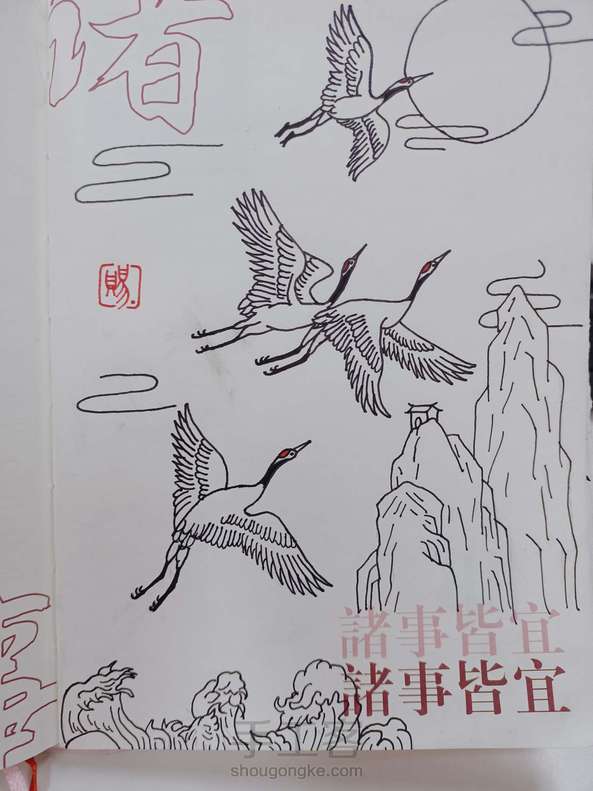 諸
賜
諸事皆宜
諸事皆宜
手工客
shougongke.com